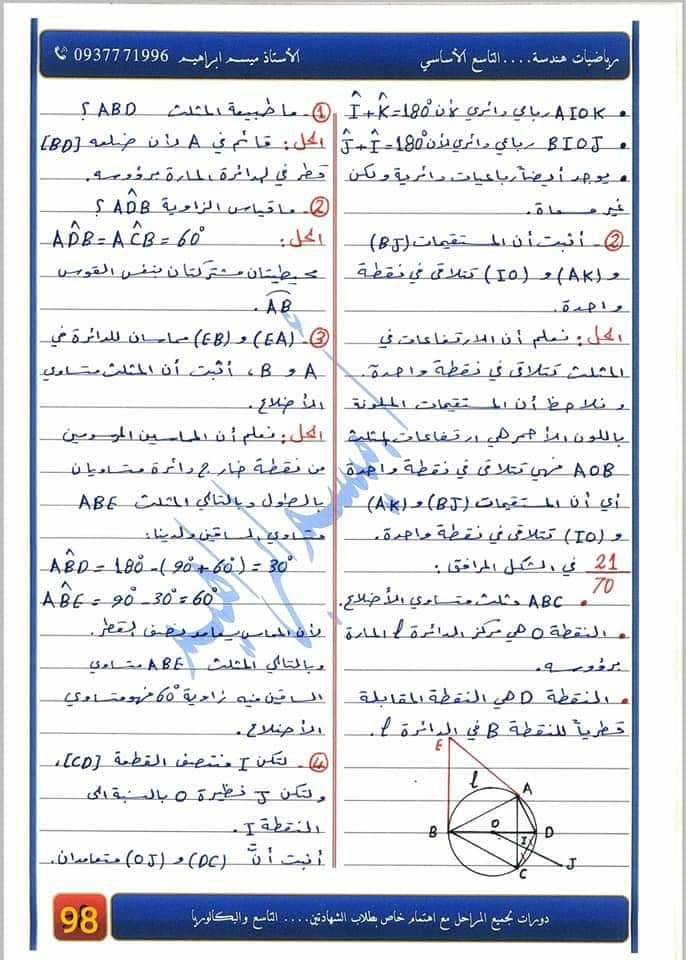 رياضيات هندسة....التاسع الأساسي
الأستاذ ميسم ابراهيم 0937771996
• AIOK رباعي دائري لأن Î+K̂=180°
• BIOJ رباعي دائري لأن Ĵ+Î=180°
• يوجد أيضاً رباعيات دائرية ولكن
غير مسماة.
②- أثبت أن المستقيمات (BJ)
و (AK) و (IO) تتلاقى في نقطة
واحدة.
الحل: نعلم أن الارتفاعات في
المثلث تتلاقى في نقطة واحدة.
ونلاحظ أن المستقيمات الملونة
باللون الأحمر هي ارتفاعات لمثلث
AOB فهي تتلاقى في نقطة واحدة
أي أن المستقيمات (BJ) و (AK)
و (IO) تتلاقى في نقطة واحدة.
21/70 في الشكل المرافق:
• ABC مثلث متساوي الأضلاع.
• النقطة O هي مركز الدائرة ℓ المارة
برؤوسه.
• النقطة D هي النقطة المقابلة
قطرياً للنقطة B في الدائرة ℓ.
E
ℓ
A
B
O
D
I
J
C
①- ما طبيعة المثلث ABD ؟
الحل: قائم في A لأن ضلعه [BD]
قطر في الدائرة المارة برؤوسه.
②- ما قياس الزاوية AD̂B ؟
الحل: AD̂B = AĈB = 60°
محيطيتان مشتركتان بنفس القوس
AB.
③- (EA) و (EB) مماسان للدائرة في
A و B، أثبت أن المثلث متساوي
الأضلاع.
الحل: نعلم أن المماسين المرسومين
من نقطة خارج دائرة متساويان
بالطول وبالتالي المثلث ABE
متساوي الساقين ولدينا:
AB̂D = 180° - (90° + 60°) = 30°
AB̂E = 90° - 30° = 60°
لأن المماس يعامد نصف القطر.
وبالتالي المثلث ABE متساوي
الساقين فيه زاوية 60° فهو متساوي
الأضلاع.
④- لتكن I منتصف القطعة [CD]،
ولتكن J نظيرة O بالنسبة الى
النقطة I.
أثبت أنَّ (DC) و (OJ) متعامدان.
دورات لجميع المراحل مع اهتمام خاص بطلاب الشهادتين.... التاسع والبكالوريا
98